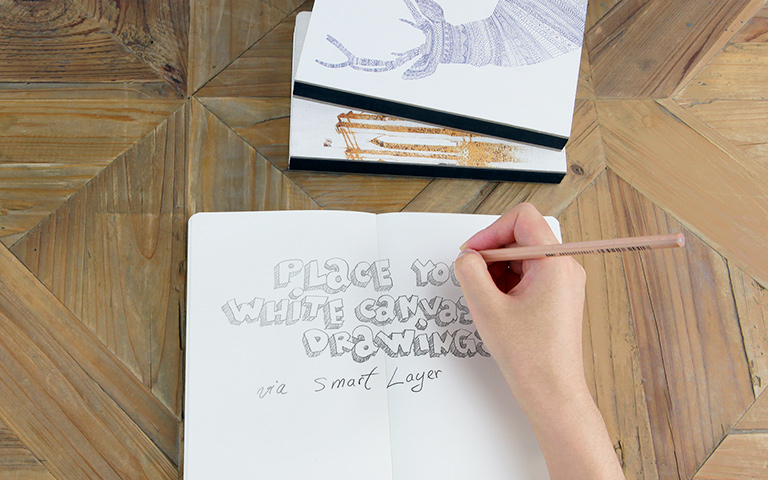 PLaCE YO
WHiTE CaNVAS
DRaWiNGS
via Smart Layer